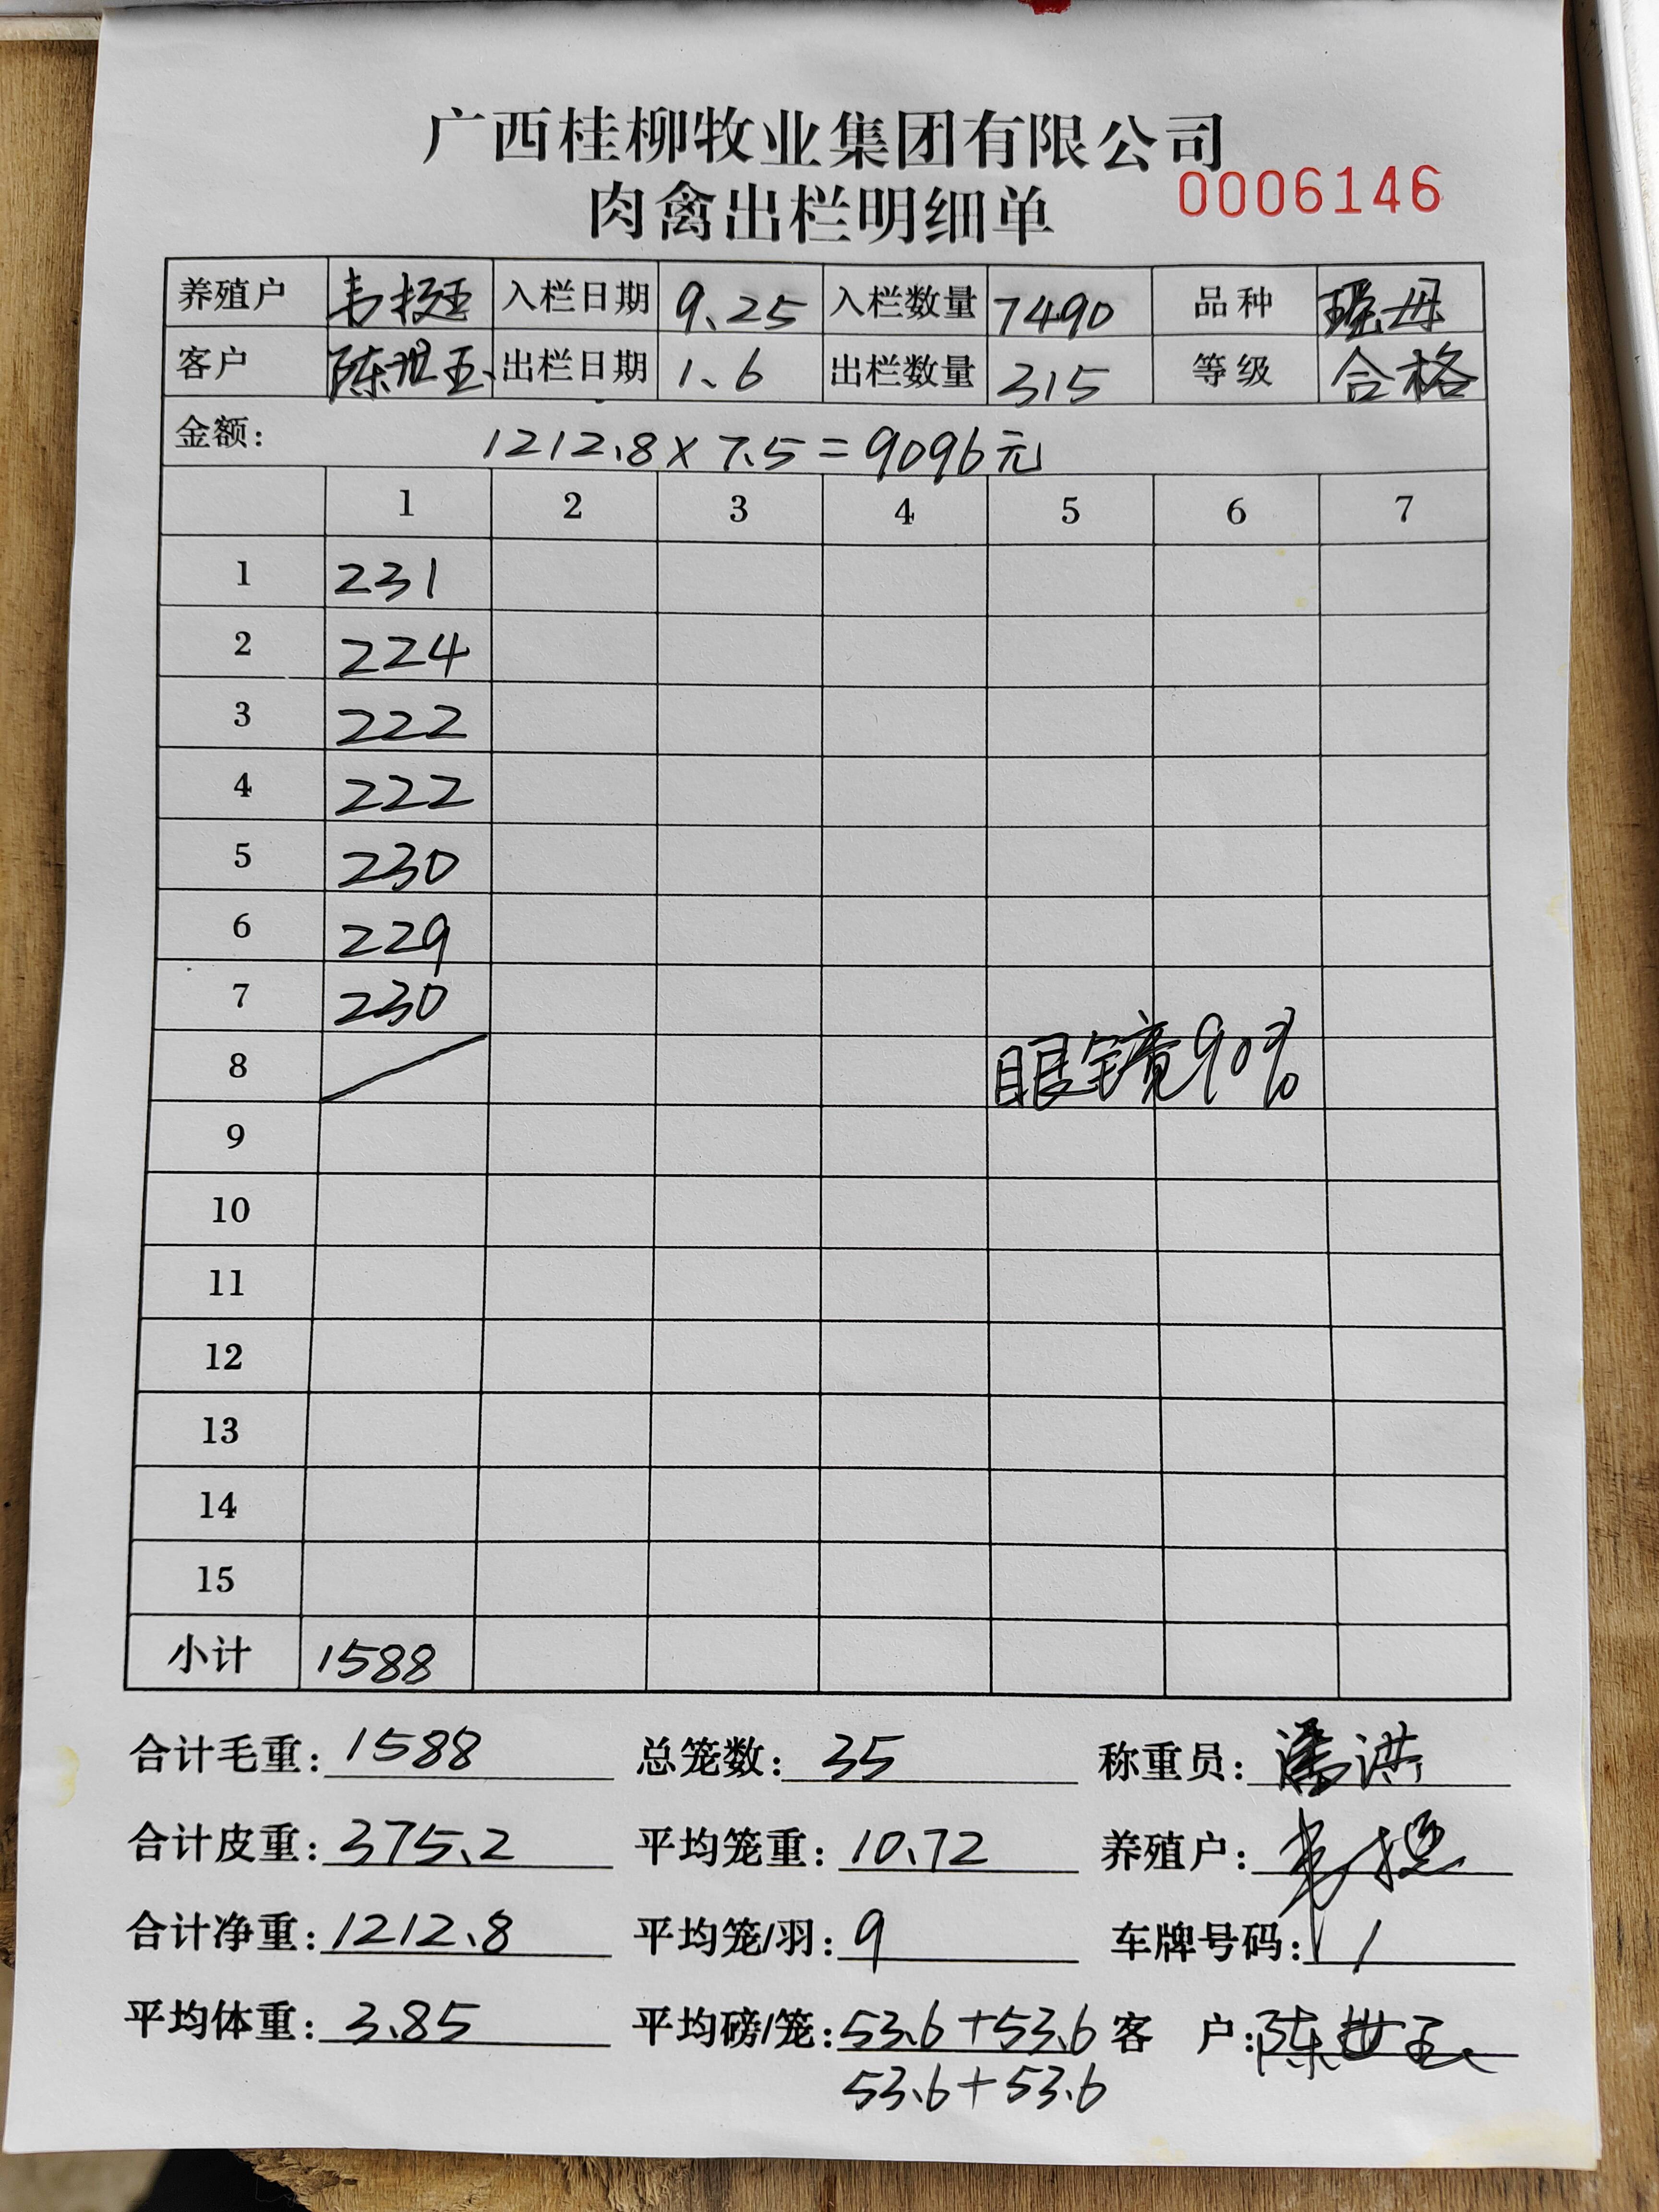 广西桂柳牧业集团有限公司
肉禽出栏明细单 0006146
养殖户 韦 入栏日期 9.25 入栏数量 7490 品种 瑶母
客户 陈世玉 出栏日期 1.6 出栏数量 315 等级 合格
金额: 1212.8×7.5=9096元
1 2 3 4 5 6 7
1 231
2 224
3 222
4 222
5 230
6 229
7 230
8 眼镜90%
9
10
11
12
13
14
15
小计 1588
合计毛重: 1588 总笼数: 35 称重员: 潘洪
合计皮重: 375.2 平均笼重: 10.72 养殖户: 韦
合计净重: 1212.8 平均笼/羽: 9 车牌号码:
平均体重: 3.85 平均磅/笼: 53.6+53.6 客户: 陈世玉
53.6+53.6